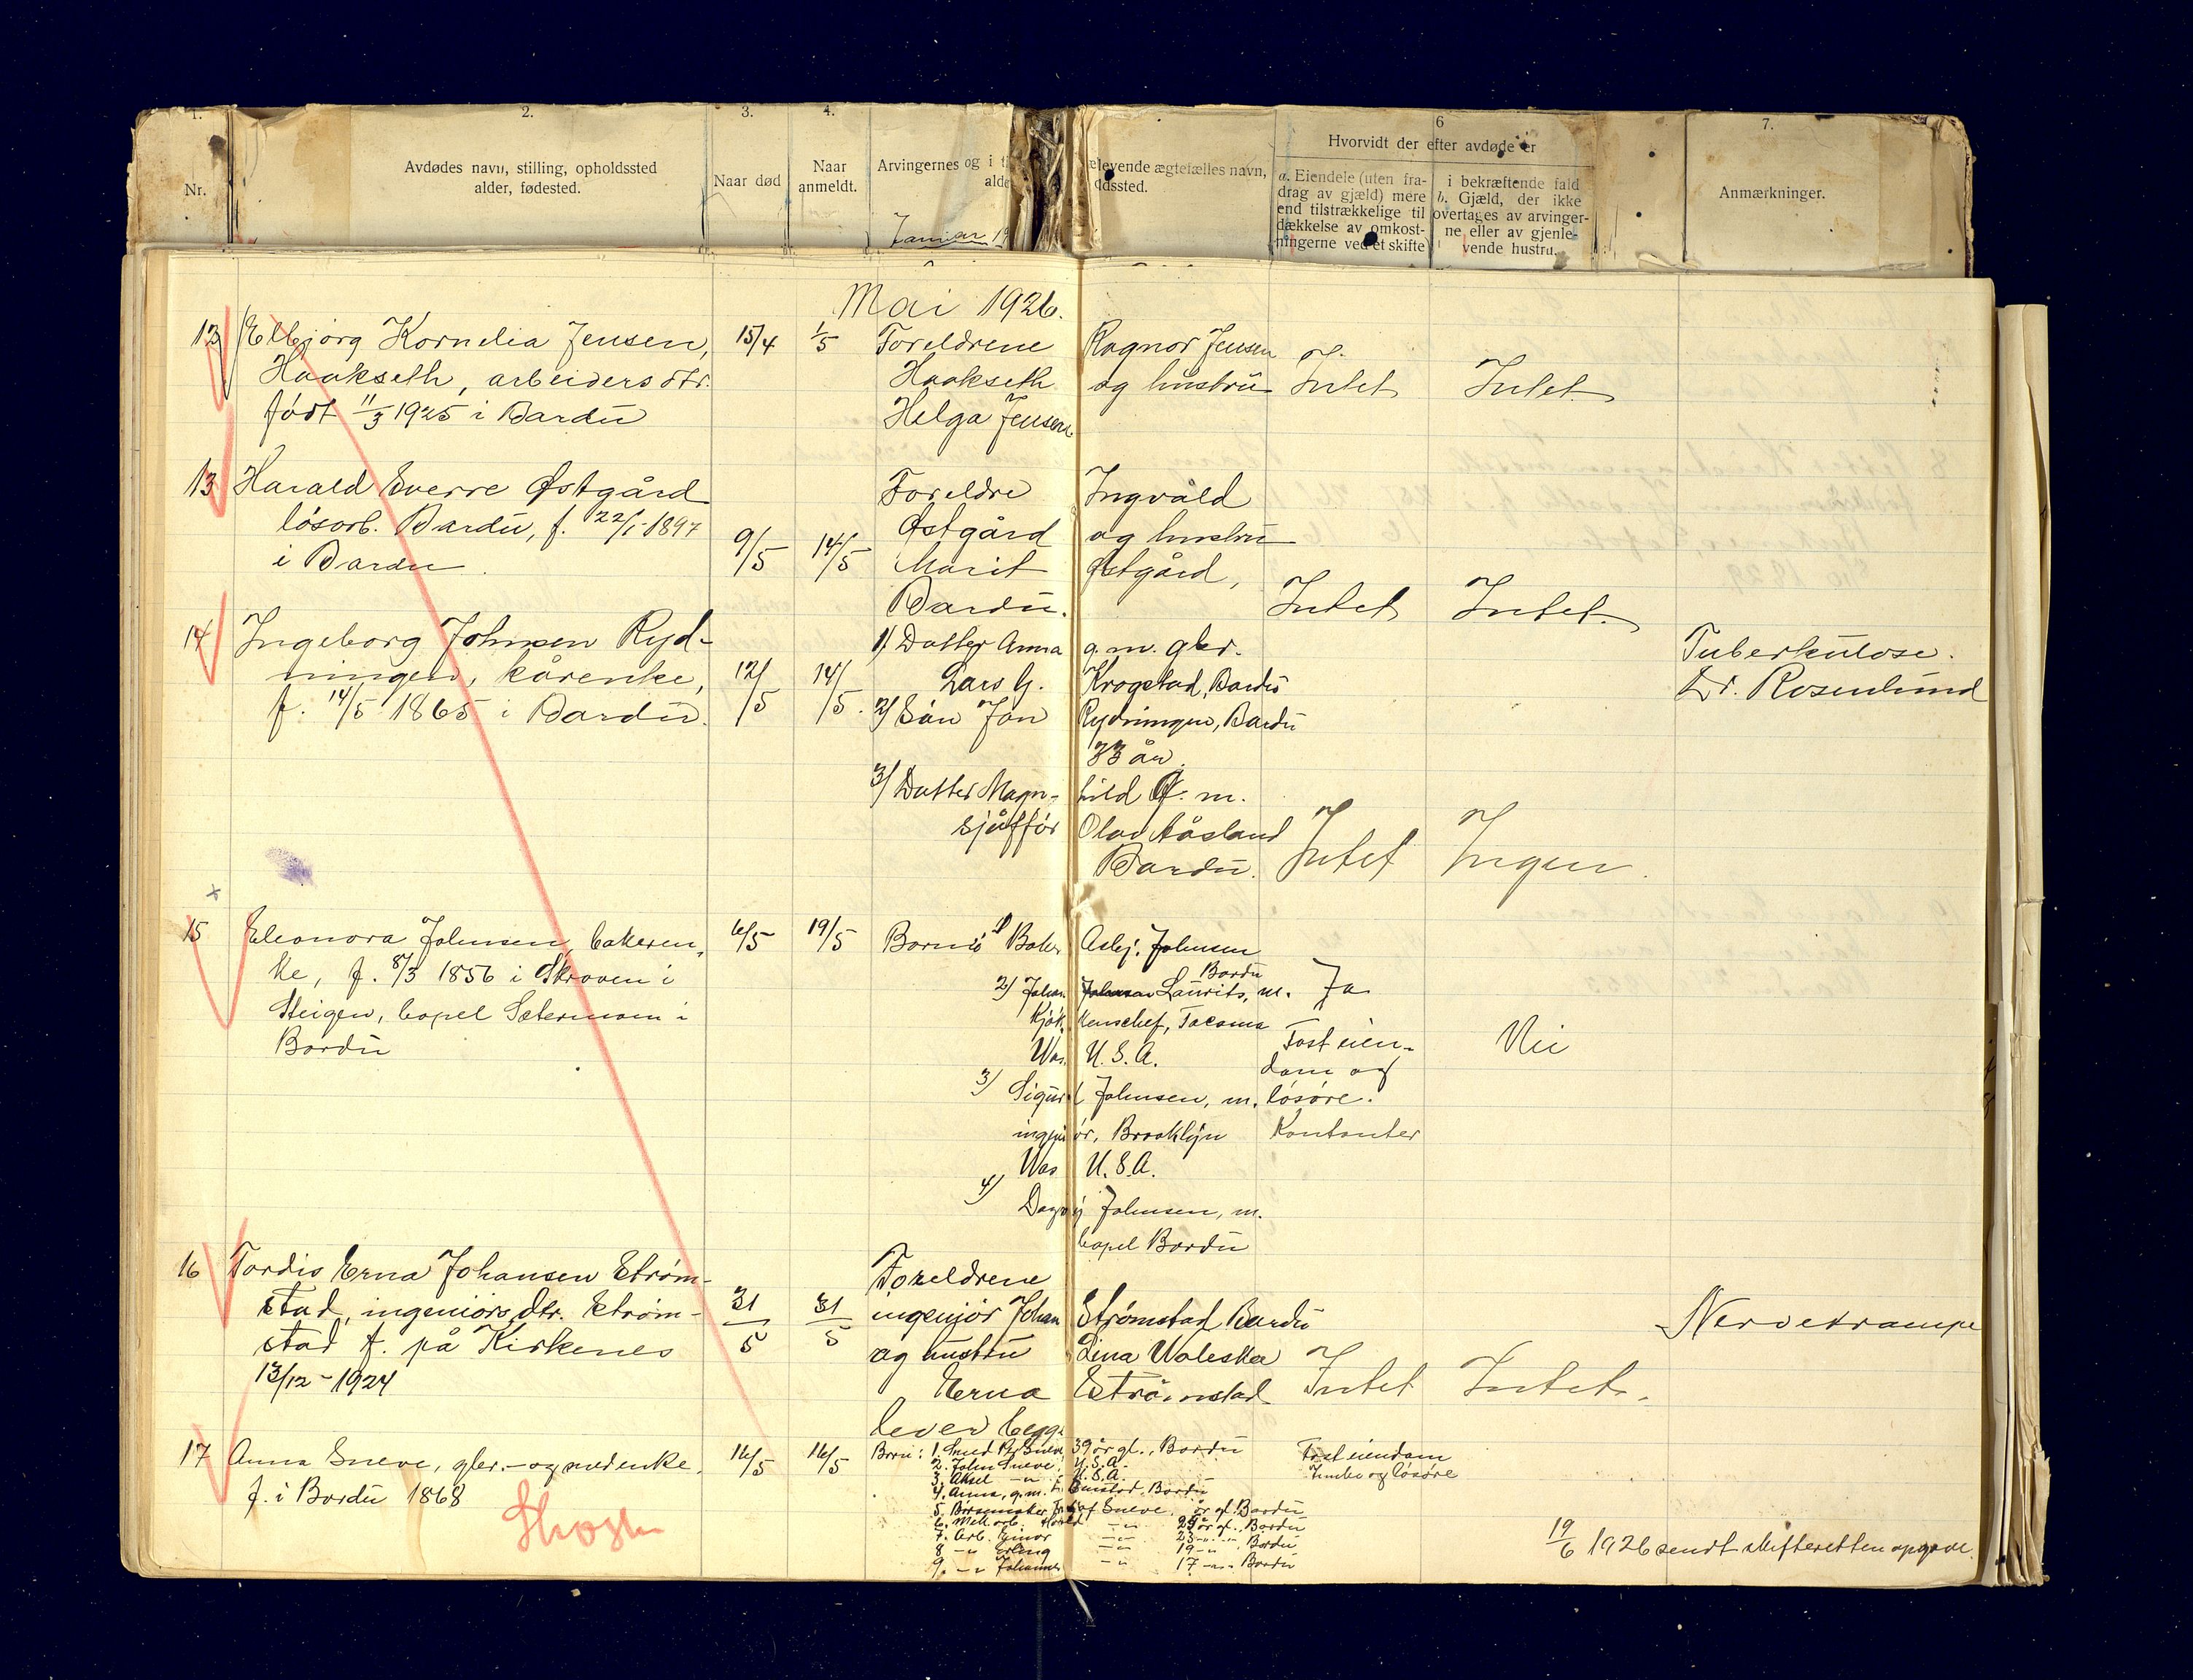 1.
2.
3.
4.
6
7.
Nr.
Avdødes navn, stilling, opholdssted
alder, fødested.
Naar død
Naar
anmeldt.
Arvingernes og i
alde
elevende ægtefælles navn,
Hvorvidt der efter avdøde er
a. Eiendele (uten fra-
drag av gjæld) mere
end tilstrækkelige til
dækkelse av omkost-
ningerne ved et skifte
i bekræftende fald
b. Gjæld, der ikke
overtages av arvinger-
ne eller av gjenle-
vende hustru.
Anmærkninger.
Januar 19
Mai 1926.
13 Elbjørg Kornelia Jensen, 15/4 1/5 Foreldrene Ragnar Jensen
Haakseth, arbeiders dtr. Haakseth og hustru Intet Intet
født 11/3 1925 i Bardu Helga Jensen
13 Harald Sverre Østgård Foreldre Ingvald
løsarb. Bardu, f. 22/1-1897 Østgård og hustru
i Bardu 9/5 14/5 Marit Østgård,
Bardu. Intet Intet.
14 Ingeborg Johnsen Ryd- 1/ Datter Anna g. m. gbr. Tuberkulose.
ningen, kårenke, 12/5 14/5. Lars G. Krogstad, Bardu Dr. Rosenlund
f. 14/5 1865 i Bardu. 2/ Sön Jon Rydningen, Bardu
33 år.
3/ Datter Magn- hild g. m.
sjåffør Olav Aåsland
Bardu. Intet Ingen.
15 Eleonora Johnsen, bakeren- 6/5 19/5 Barnis 1) Baker Asbj. Johnsen
Bardu
ke, f. 8/3 1856 i Skroven i 2) Johan Laurits, m. Ja
Steigen, bopel Setermoen i Kjøk kenschef, Tacoma Fast eien-
Bardu Was. U.S.A. dom og Nei
3) Sigurd Johnsen, m. løsøre.
ingeniør, Brooklyn Kontanter
Was U.S.A.
4) Dagny Johnsen, m.
bopel Bardu
16 Tordis Erna Johansen Strøm- Foreldrene
stad, ingeniørs dtr. Strøm- 31/5 31/5 ingeniør Johan Strømstad Bardu Nervekrampe
stad f. på Kirkenes og hustru Lina Valeska
13/12-1924 Erna Strømstad Intet Intet.
lever begge
17 Anna Sneve, gbr.- og smedenke, 16/5 16/5 Barn: 1. Smed P. Sneve 39 år gl., Bardu Fast eiendom
2. John Sneve, U.S.A. og løsøre
f. i Bardu 1868 3. Aksel -"- i U.S.A.
4. Anna, g.m. Bardu
5. Børsemaker Sneve, år gl. Bardu
6. Mek. arb. Harald -"- 25 år gl., Bardu
7. Arb. Einar -"- 23 -"- Bardu
8 -"- Erling -"- 19 -"- Bardu
9. -"- Johannes -"- 17 -"- Bardu
19/6 1926 sendt skifteretten opgave.